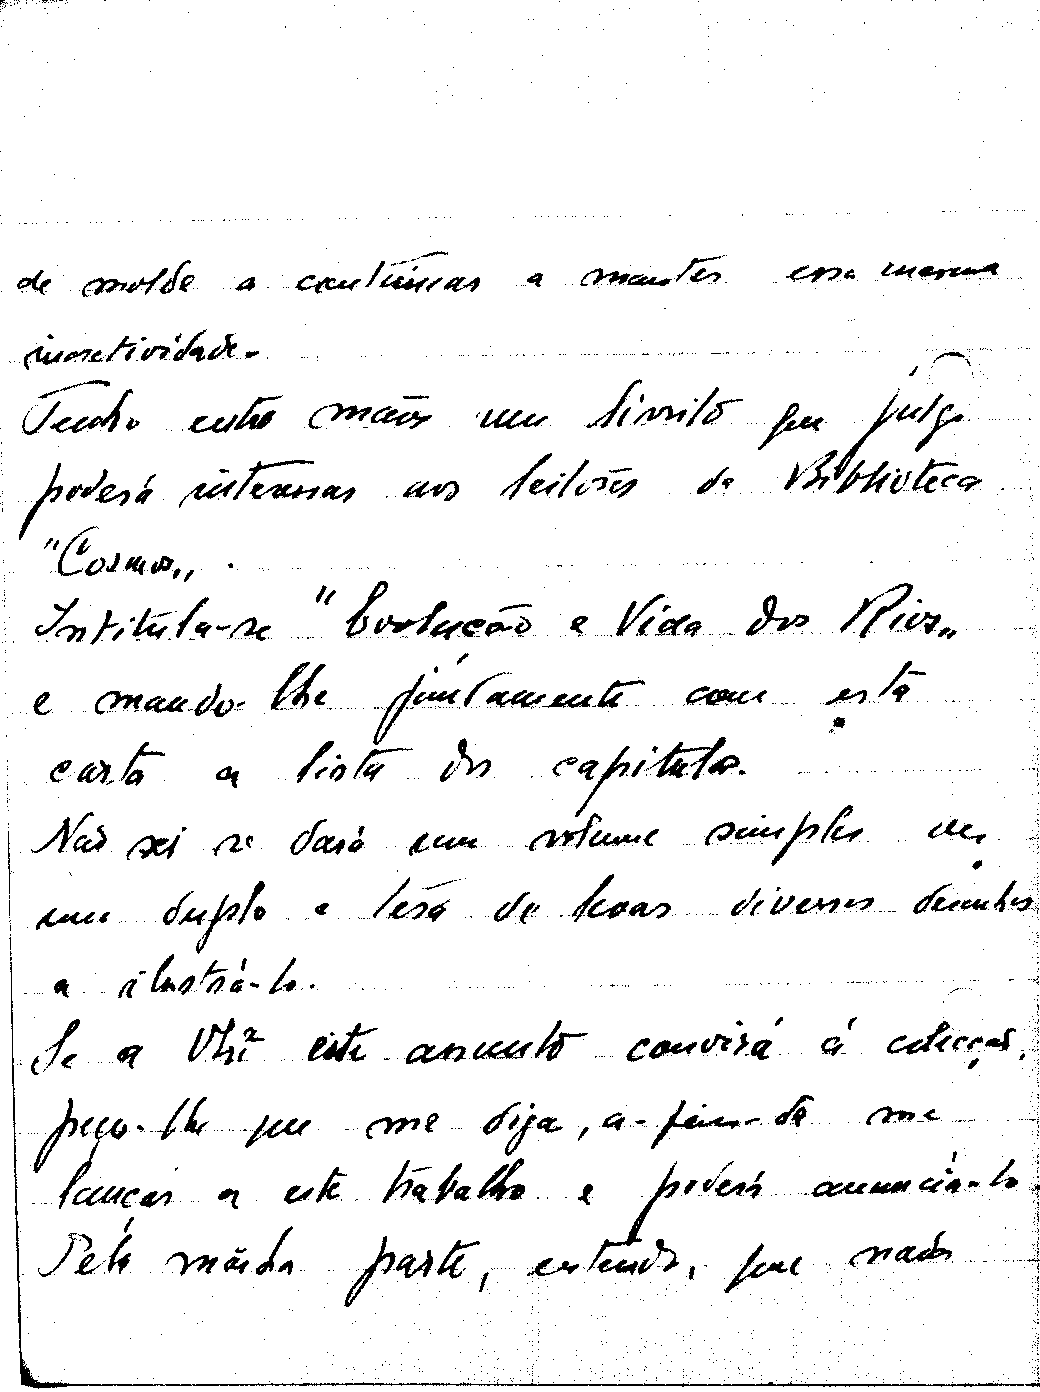 de molde a continuar a manter essa mesma
inactividade.
Tenho entre mãos um livrito que julgo
poderá interessar aos leitores da Biblioteca
"Cosmos„.
Intitula-se "Evolução e Vida dos Rios„
e mando-lhe juntamente com esta
carta a lista dos capitulos.
Não sei se dará um volume simples ou
um duplo e terá de levar diversos desenhos
a ilustrá-lo.
Se a V. este assunto convirá á colecção,
peço-lhe que me diga, a-fim-de me
lançar a este trabalho e poderá anunciá-lo.
Pela minha parte, entendo, que nada